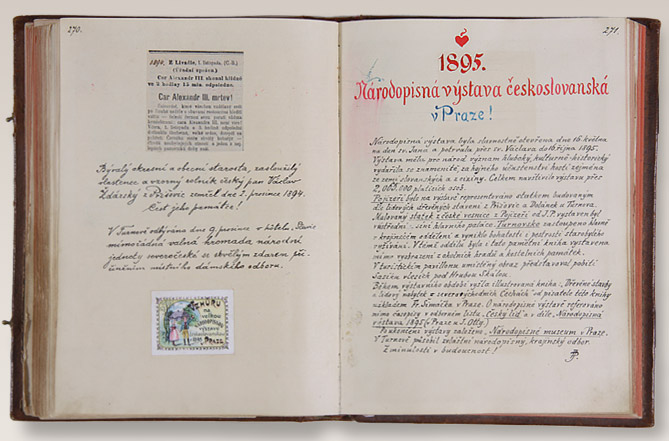 270.
1894. Z Livadie, 1. listopadu. (C.-B.)
(Úřední zpráva.)
Car Alexandr III. skonal klidně
ve 2 hodiny 15 min. odpoledne.
Car Alexandr III. mrtev!
Bývalý okresní a obecní starosta, zasloužilý
vlastenec a vzorný rolník český pan Václav
Žďárský z Příšovic zemřel dne 7. prosince 1894.
Čest jeho památce!
V Turnově odbývána dne 9. prosince v hotelu
mimořádná valná hromada národní
jednoty severočeské se skvělým zdarem při-
činěním místního dámského odboru.
VZHŮRU
NA
VELKOU
NÁRODOPISNOU
VÝSTAVU
1895
PRAZE
271.
1895.
Národopisná výstava českoslovanská
v Praze!
Národopisná výstava byla slavnostně otevřena dne 16. května
na den sv. Jana a potrvala přes sv. Václava do října 1895.
Výstava měla pro národ význam hluboký, kulturně-historický
vydařila se znamenitě, za hojného účastenství hostí zejména
ze zemí slovanských a z ciziny. Celkem navštívilo výstavu přes
2,000.000 platících osob.
Pojizeří bylo na výstavě representováno statkem budovaným
dle lidových dřevěných staveni z Příšovic a Dolánek u Turnova.
Malovaný statek z české vesnice z Pojizeří od J. P. vystaven byl
ústřední síni hlavního paláce. Turnovsko zastoupeno hlavně
v krojovém oddělení a vyniklo bohatostí a pestrostí starobylého
vyšívání. V témž oddílu byla i tato pamětní kniha vystavena
mimo vyobrazení z okolních hradů a kostelních památek.
V turistickém pavillonu umístěný obraz představoval pobití
Sasíků v lesích pod Hrubou Skálou.
Během výstavního období vyšla illustrovaná kniha: „Dřevěné stavby
a lidový nábytek v severovýchodních Čechách" od pisatele této knihy
nákladem Fr. Šimáčka v Praze. O národopisné výstavě referováno
mimo časopisy v odborném listu Český lid a v díle, Národopisná
výstava 1895 (v Praze u J. Otty.)
Po ukončení výstavy založeno „Národopisné museum v Praze.
V Turnově působil zvláštní národopisný, krajinský odbor.
Z minulosti v budoucnost!